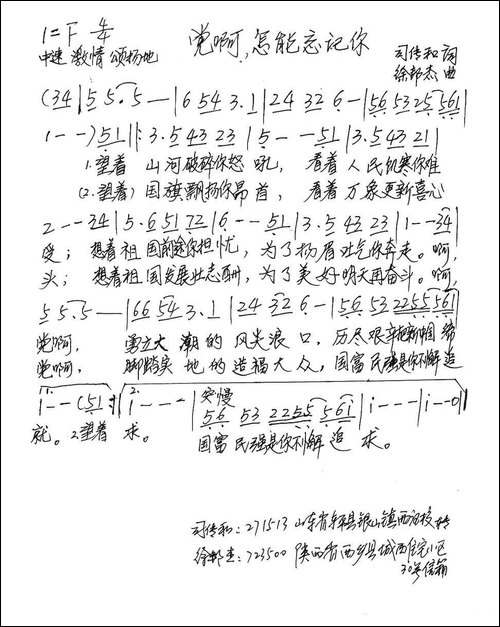 1=F 4/4
党啊,怎能忘记你
中速 激情 颂扬地
司传和 词
徐邦杰 曲
(34|5 5.5—|6 54 3.1|24 32 6-|56 53 25 561|
1--)51|:3.5 43 23|5--51|3.5 43 21|
1.望着 山河破碎你怒吼, 看着人民饥寒你难
(2.望着)国旗飘扬你昂首, 看着万象更新喜心
2--34|5.6 51 72|6--51|3.5 43 23|1--34|
受; 想着祖国前途你担忧,为了扬眉吐气你奔走。啊,
头; 想着祖国发展壮志酬,为了美好明天再奋斗。啊,
5 5.5-|66 54 3.1|24 32 6-|56 53 2255 561|
党啊, 勇立大潮的风尖浪口,历尽艰辛
党啊, 脚踏实地的造福大众,国富民强是你不懈追
1.
1--(51:|
2.
1---|
突慢
56 53 2255 561|1---|1--0||
就。2望着 求。 国富民强是你不懈追 求。
司传和:271513 山东省东平县银山镇西
徐邦杰:723500 陕西省西乡县城西住宅小区
30号信箱